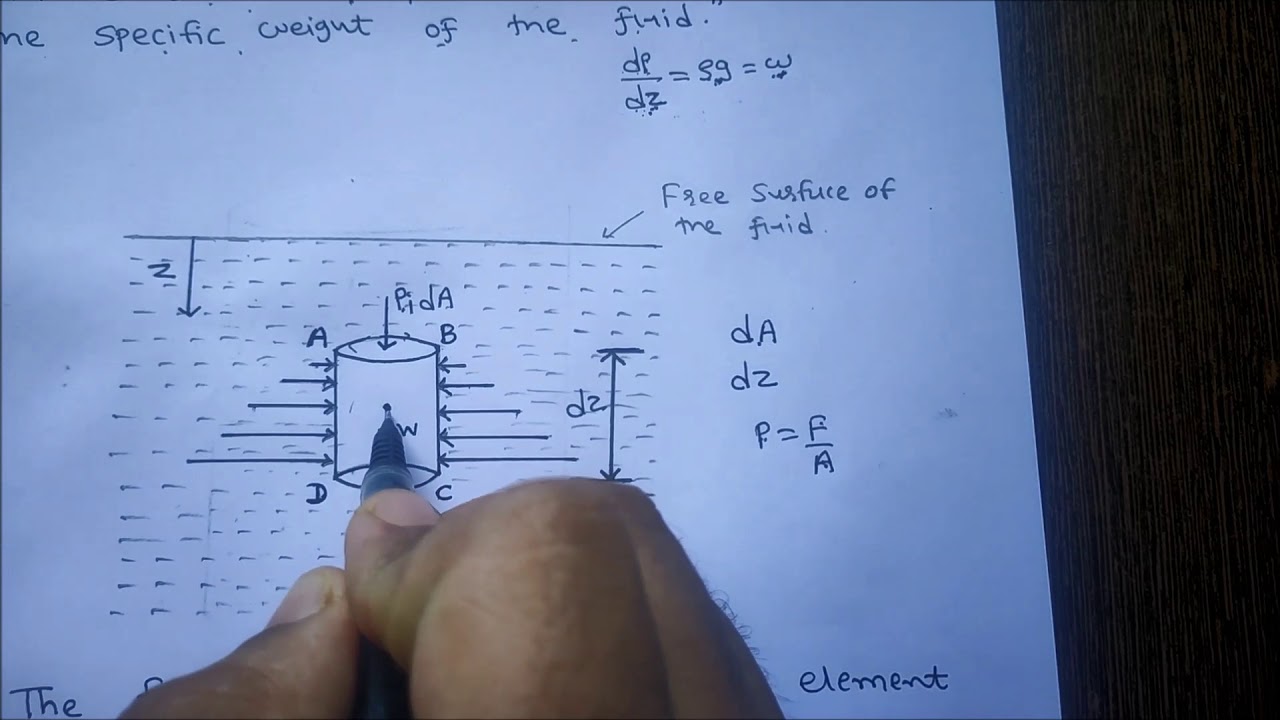 he specific weight of the fluid."
dP/dz = ρg = w
Free Surface of
the fluid.
Z
P, dA
A B
dA
dz
dz
P = F/A
W
D C
The element